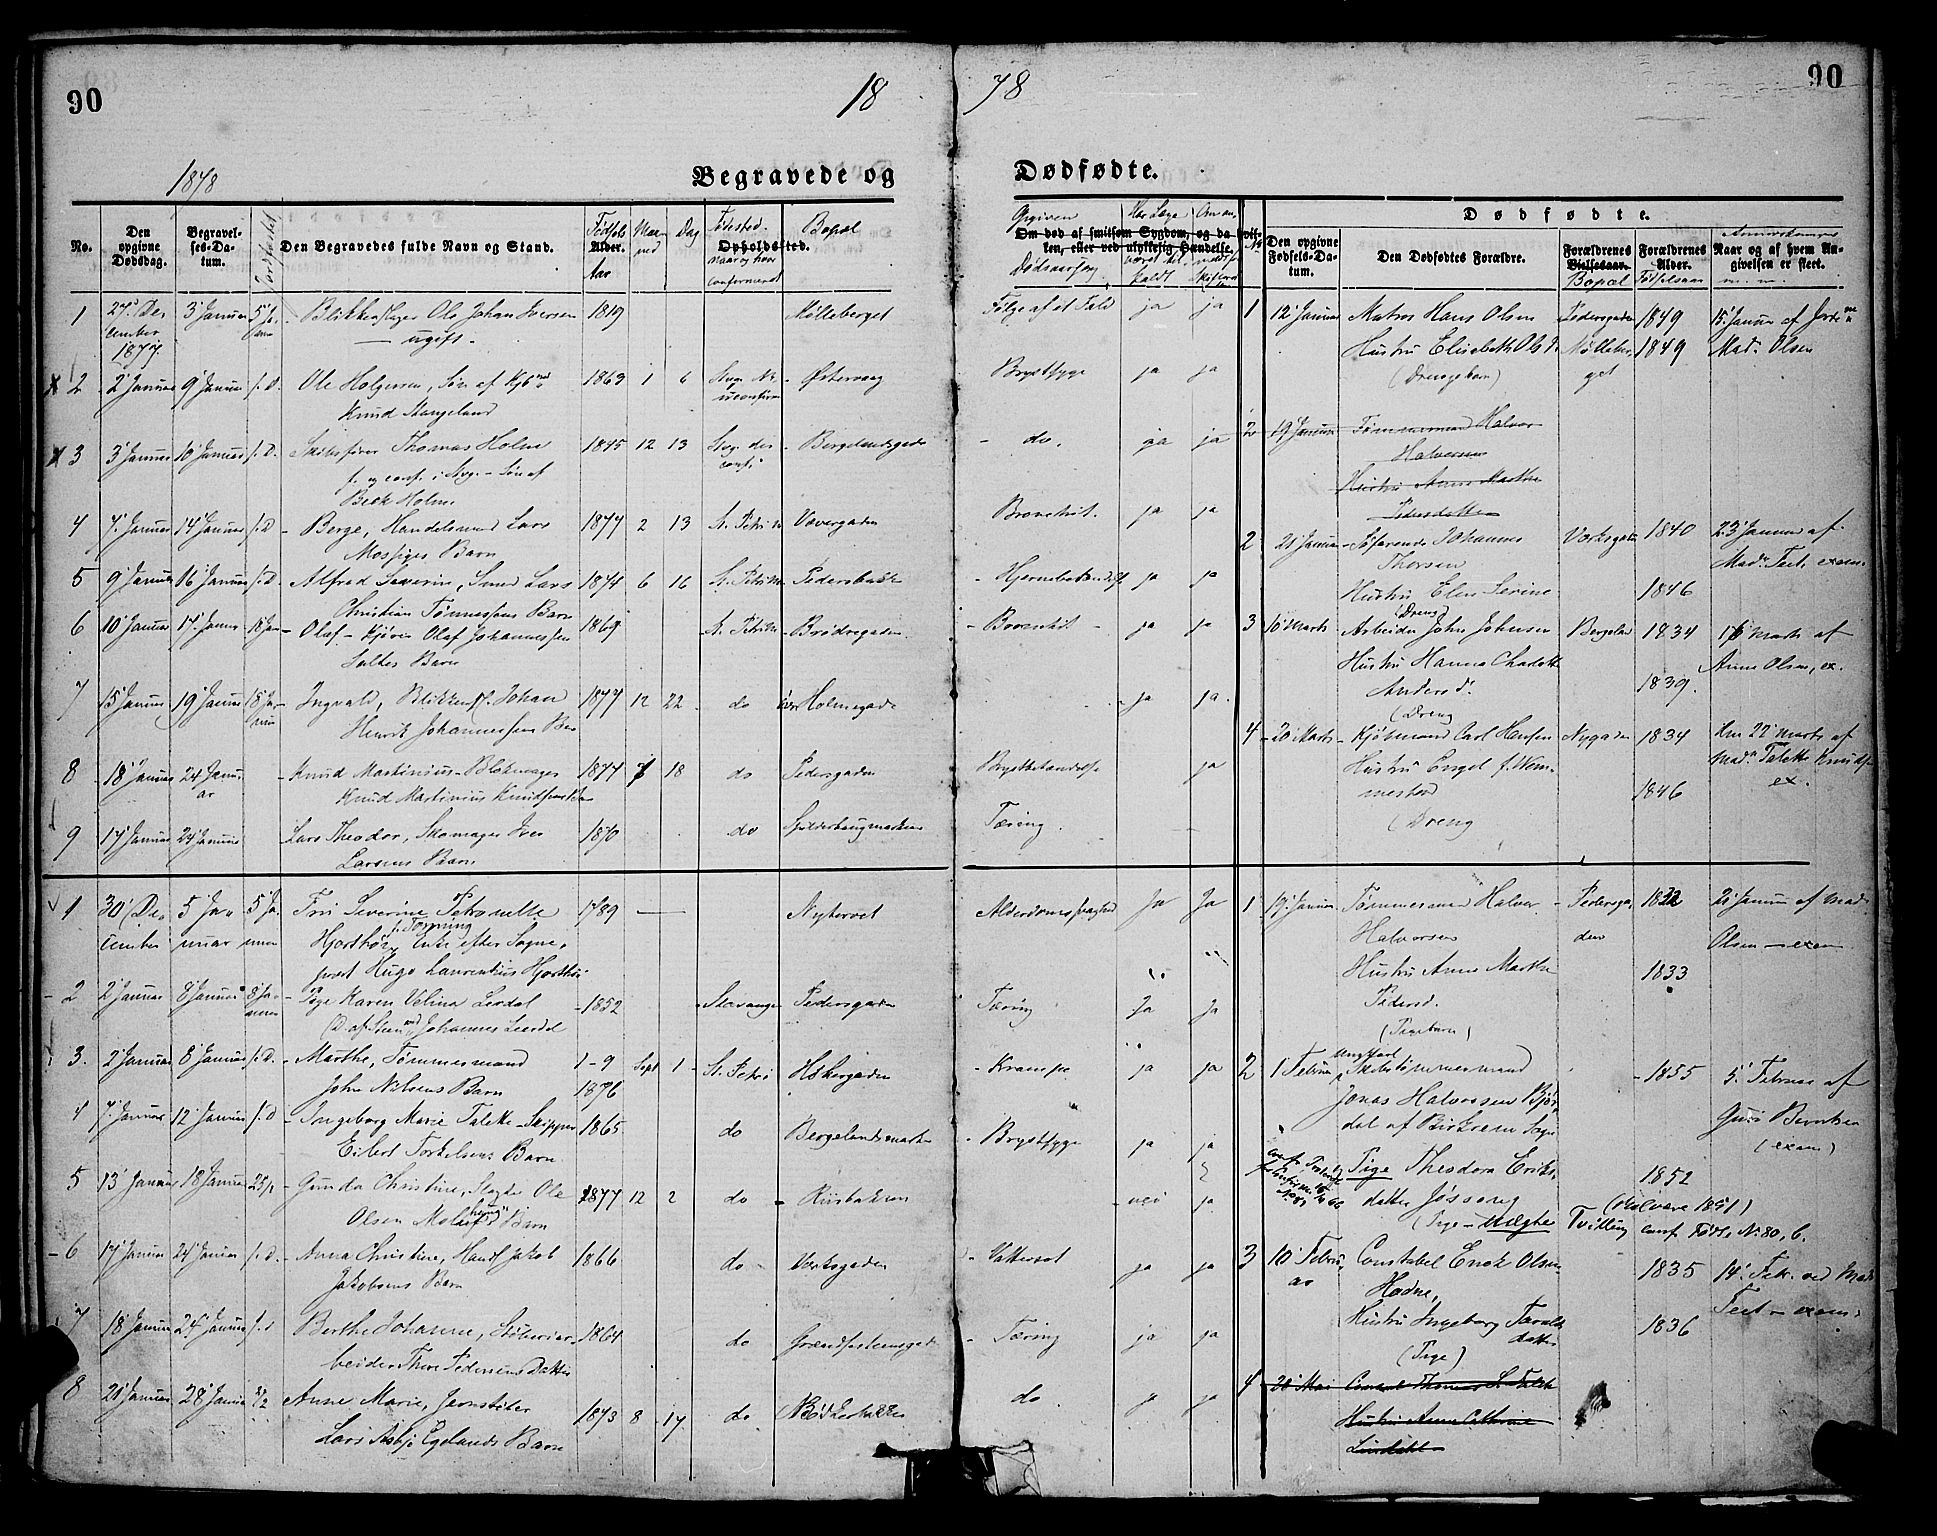 90
18
78
90
1878
Begravede og
Dødfødte.
No.
Den opgivne Dødsdag.
Begravelses-Datum.
Jordfæstet
Den Begravedes fulde Navn og Stand.
Fødsels Alder. Aar
Maaned
Dag
Fødested.
Opholdssted.
naar og hvor confirmeret
Bopæl
Opgiven
Om død af smitsom Sygdom, og da hvilken, eller ved ulykkelig Hændelse.
Dødsaarsag
Har Læge været tilkaldt
Dødfødte.
Den opgivne Fødsels-Datum.
Den Dødfødtes Forældre.
Forældrenes Vielsesaar.
Bopæl
Forældrenes Alder.
Fødselsaar
Anmærkninger
Naar og af hvem Angivelsen er sket.
m. m.
1 27 December 1877 3 Januar 5 Ja- Blikkenslager Ole Johan Iversen 1819 Mølleberget
ugift.
x 2 2 Januar 9 Januar s. D. Ole Holgersen, Søn af 1863 1 6 Østervaag
Knud Stangeland
x 3 3 Januar 10 Januar s. D. Skibsfører Thomas Holme 1845 12 13 Bergelandsgade
f. og conf. i Stvgr - Søn af
Beck Holme
4 7 Januar 14 Januar s. D. Berge, Handelsmand Lars 1877 2 13 St. Petri Vævergaden
Mossiges Barn
5 9 Januar 16 Januar s. D. Alfred Severin, Smed Lars 1874 6 16 St. Petri Pedersbakke
Christian Tønnessens Barn
6 10 Januar 17 Januar 18 Jan Olaf - Olaf Johannessen 1869 St. Petri Brødregaden
Saltes Barn
7 15 Januar 19 Januar 15 Januar Ingvald, Blikkensl. Johan 1877 12 22 do Holmegade
Henrik Johannessens Bar
8 18 Januar 24 Januar Knud Martinius - Blokmager 1877 18 do Pedersgaden
Knud Martinius Knudsens Barn
9 17 Januar 24 Januar Lars Theodor, Skomager Iver 1870 do Spilderhaugmarken
Larsens Barn
1 30 December 5 Januar 5 Januar Fru Severine Petronelle 1789 — Nytorvet
f. Tosning
Hjorthøy Enke efter Sogne-
præst Hugo Laurentius Hjorthøi
2 2 Januar 8 Januar 8 Januar Pige Karen Velina Lerdal 1852 Stavanger Pedersgaden
D. af Johannes Lerdal
3. 2 Januar 8 Januar s. D. Marthe, Tømmermand 1-9 1876 Sept 1 St. Petri Høkergaden
John Nilsens Barn
4 7 Januar 12 Januar s. D Ingeborg Marie Talette - Skipper 1865 do Bergelandsmarken
Eilert Torkelsens Barn
5 13 Januar 18 Januar Gunda Christine, Ole 1877 12 2 do Risbakken
Olsen Barn
6 17 Januar 24 Januar s. D. Anna Christine, Handl. Jakob 1866 do Værksgaden
Jakobsens Barn
7 18 Januar 24 Januar s. d Berthe Johanne, Støberiar- 1864 do
beider Thore Pedersens Datter
8 20 Januar 28 Januar Anne Marie, Jernstøber 1873 8 17 do Bødkerbakken
Lars Asbjø Egelands Barn
Følge af et Fald ja ja
Brystsyge ja ja
do. ja ja
Bronchit. ja ja
Hjernebetændelse ja ja
Bronchit ja ja
ja ja
Brystbetændelse ja
Tæring
Alderdomssvaghed Ja Ja
Tæring Ja Ja
Krampe ja ja
Brystsyge ja ja
nei ja
Vattersot ja ja
Tæring ja ja
do ja ja
1 12 Januar Matros Hans Olsen Pedersgaden 1849 15 Januar af Jorde-
Hustru Elisabeth Olsd. Mølleber- 1849 Mad. Olsen
(Drengebarn) get
2 19 Januar Tømmermand Halvor
Halvorsen
Hustru Anne Marthe
Pedersdatter
2 21 Januar Søfarende Johannes Værksgaden 1840 23 Januar af
Thorsen Mad. Feet, exam.
Hustru Elen Serine 1846
(Dreng)
3 10 Marts Arbeider John Johnsen Bergeland 1834 16 Marts af
Hustru Hanna Charlotte Anne Olsen, ex.
Andersd. 1839.
(Dreng
4 20 Marts Kjøbmand Carl Hansen Nygaden 1834 Den 22 Marts af
Hustru Engel f. Wem- Mad. Talette Knudsen
mestad 1846 ex.
(Dreng
1 19 Januar Tømmermand Halvor Pedersga- 1832 21 Januar af Mad.
Halvorsen den Olsen - exam
Hustru Anne Marthe 1833
Pedersd.
(Pigebarn)
2 1 Februar Ungkarl Skibstømmermand 1855 5 Februar af
Jonas Halvorsen Bjør- Guro Berntsen
dal af Birkrem Sogn (exam)
Pige Theodora Eriks- 1852
datter Jøssang (Halvere 1851)
(Pige - Uægte Tvilling conf. Føds. N. 80, b.
3 10 Februar Constabel Enok Olsen 1835 14 Febr. ved Mad.
Hodne, Feet - exam.
Hustru Ingeborg Tarald- 1836
datter
(Pige)
4 20 Mai Consul Thomas S. Falck
Hustru Anna Cathrine
Lindahl